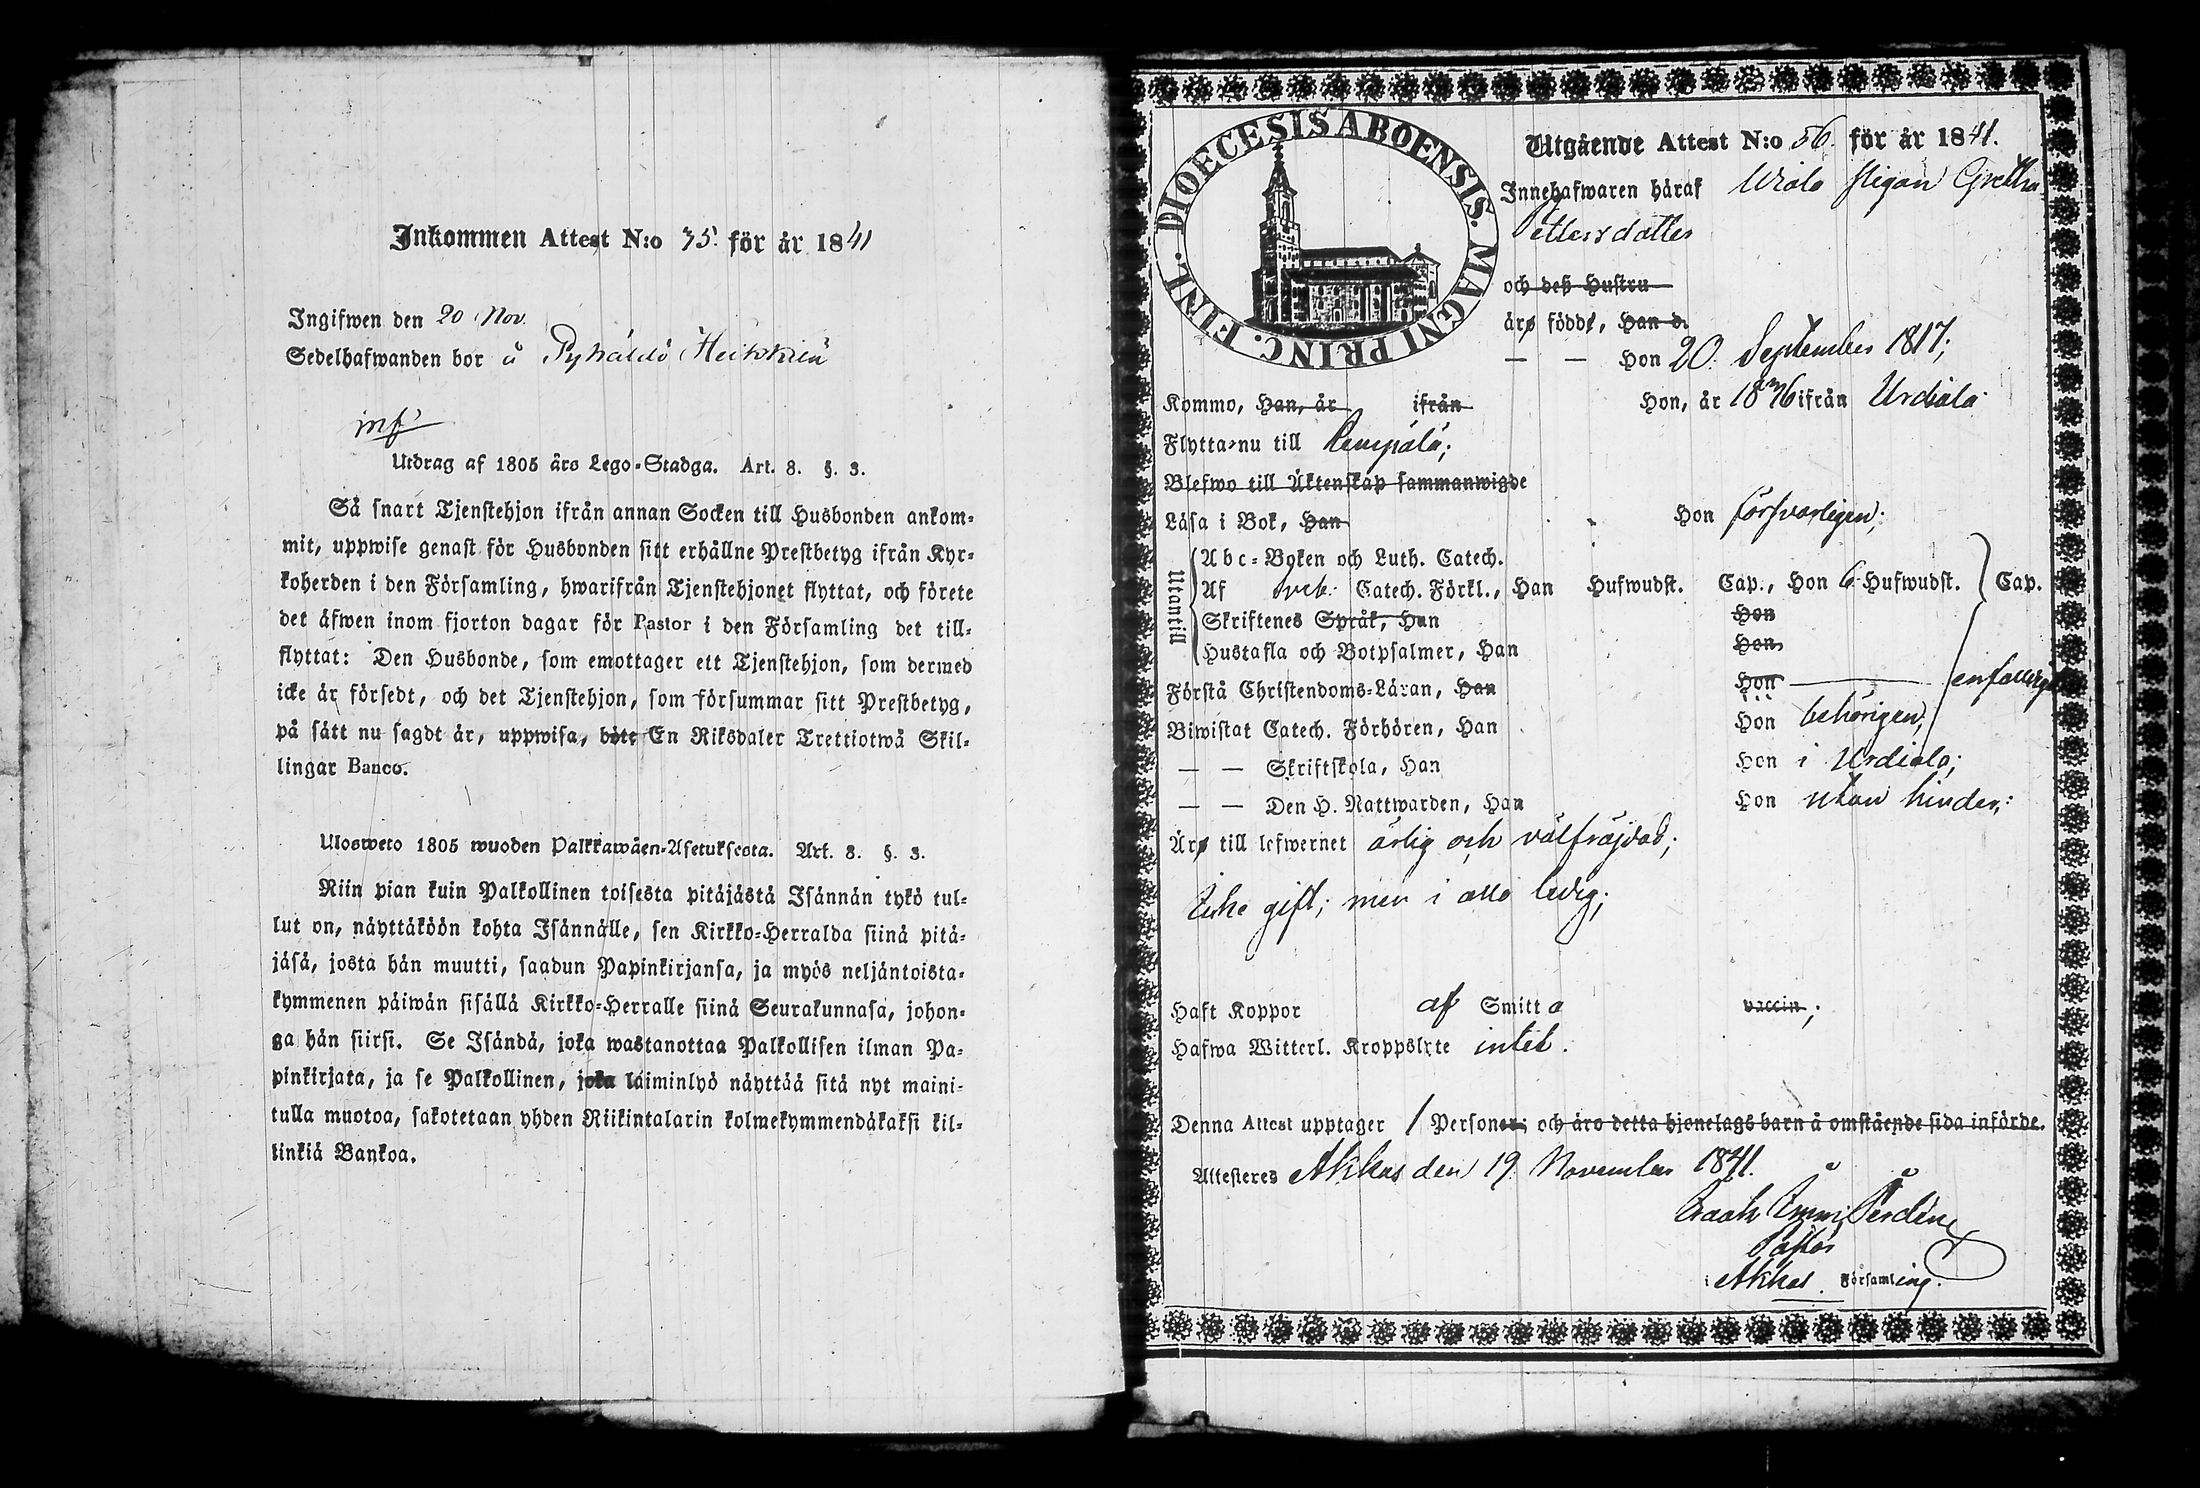 Inkommen Attest N:o 35. för år 1841
Ingifwen den 20 Nov.
Sedelhafwanden bor å Pyhäldö Heikkilä
inf
Utdrag af 1805 års Lego-Stadga. Art. 8. §. 3.
Så snart Tjenstehjon ifrån annan Socken till Husbonden ankom-
mit, uppwise genast för Husbonden sitt erhållne Prestbetyg ifrån Kyr-
koherden i den Församling, hwarifrån Tjenstehjonet flyttat, och förete
det äfwen inom fjorton dagar för Pastor i den Församling det till-
flyttat: Den Husbonde, som emottager ett Tjenstehjon, som dermed
icke är försedt, och det Tjenstehjon, som försummar sitt Prestbetyg,
på sätt nu sagdt är, uppwisa, böte En Riksdaler Trettiotwå Skil-
lingar Banco.
Ulosweto 1805 wuoden Palkkawäen-Asetuksesta. Art. 8. §. 3.
Niin pian kuin Palkollinen toisesta pitäjästä Isännän tykö tul-
lut on, näyttäköön kohta Isännälle, sen Kirkko-Herralda siinä pitä-
jäsä, josta hän muutti, saadun Papinkirjansa, ja myös neljäntoista-
kymmenen päiwän sisällä Kirkko-Herralle siinä Seurakunnasa, johon-
ga hän siirsi. Se Isändä, joka wastanottaa Palkollisen ilman Pa-
pinkirjata, ja se Palkollinen, joka laiminlyö näyttää sitä nyt maini-
tulla muotoa, sakotetaan yhden Riikintalarin kolmekymmendäkaksi kil-
linkiä Bankoa.
DIOECESIS ABOENSIS. MAGNI PRINC. FINL.
Utgående Attest N:o 56. för år 1841.
Innehafwaren häraf Wiala Pigan Gretha
Pettersdotter
och deß Hustru
äro född, Han d.
— — Hon 20. September 1817;
Kommo, Han, år ifrån Hon, år 1836 ifrån Urdiala
Flytta nu till Lempälä;
Blefwo till Äktenskap sammanwigde
Läsa i Bok, Han Hon försvarligen;
Utantill
Abc-Boken och Luth. Catech.
Af Sveb. Catech. Förkl., Han Hufwudst. Cap., Hon 6 Hufwudst. Cap.
Skriftenes Språk, Han Hon
Hustafla och Botpsalmer, Han Hon
Förstå Christendoms-Läran, Han Hon enfaldigt
Biwistat Catech. Förhören, Han Hon behörigen;
— — Skriftskola, Han Hon i Urdiala;
— — Den H. Nattwarden, Han Hon utan hinder;
Äro till lefwernet ärlig och välfräjdad;
Icke gift; men i allo ledig;
Haft Koppor af Smitta vaccin;
Hafwa Witterl. Kroppslyte intet.
Denna Attest upptager 1 Personer, och äro detta hjonelags barn å omstående sida införde.
Attesteres Akkas den 19 November 1841.
Isaak Perdén
Pastor
i Akkas Församling.